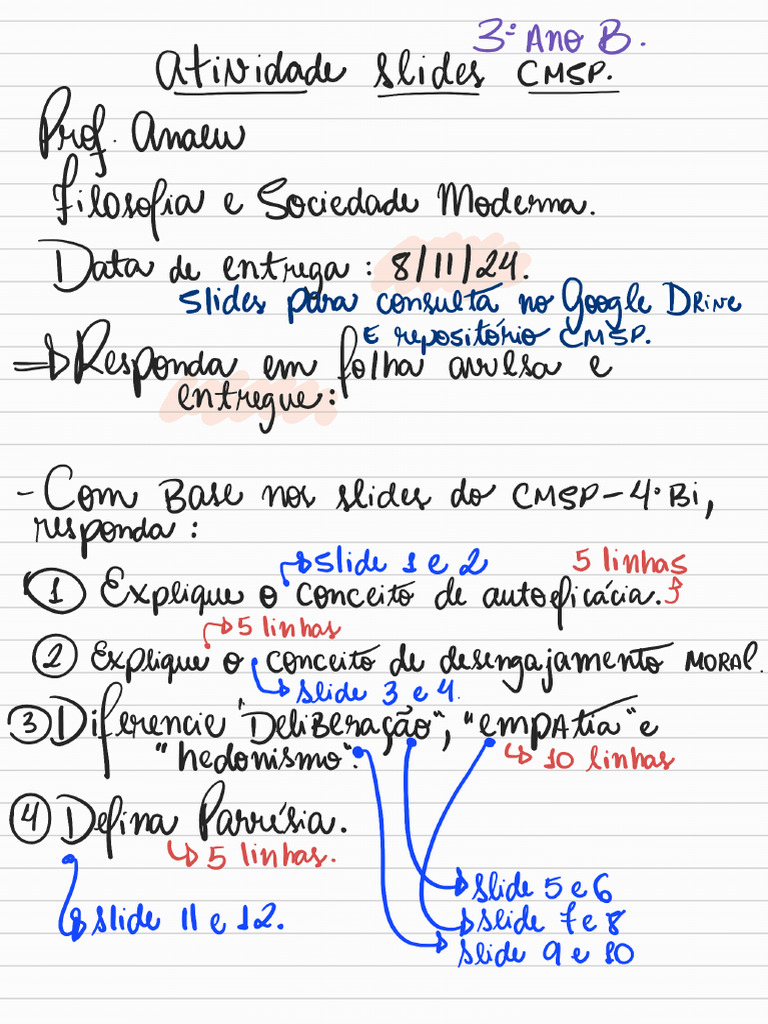 3º Ano B.
Atividade slides CMSP.
Prof. Analu
Filosofia e Sociedade Moderna.
Data de entrega: 8/11/24.
Slides para consulta no Google Drive
E repositório CMSP.
⇒ Responda em folha avulsa e
entregue:
- Com Base nos slides do CMSP-4º Bi,
responda:
slide 1 e 2 5 linhas
1 Explique o conceito de autoeficácia.
5 linhas
2 Explique o conceito de desengajamento MORAL.
slide 3 e 4.
3 Diferencie "Deliberação", "empatia" e
"hedonismo". 10 linhas
4 Defina Parrésia.
5 linhas.
slide 5 e 6
slide 11 e 12. slide 7 e 8
slide 9 e 10